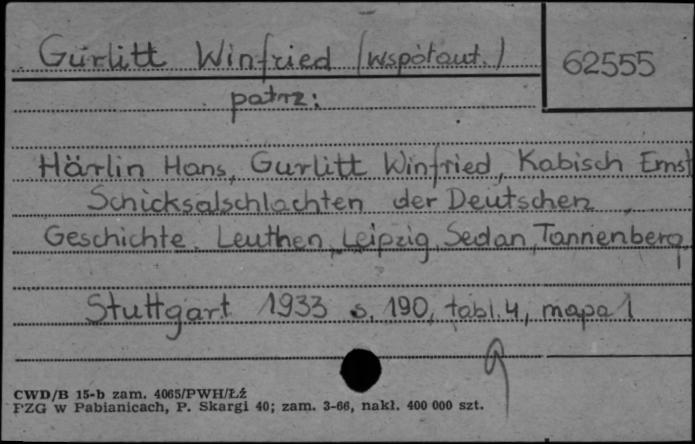 Gurlitt Winfried (współaut.)
62555
patrz:
Härlin Hans, Gurlitt Winfried, Kabisch Ernst
Schicksalschlachten der Deutschen
Geschichte. Leuthen, Leipzig, Sedan, Tannenberg.
Stuttgart 1933 s. 190, tabl. 4, mapa 1
CWD/B 15-b zam. 4065/PWH/Łź
PZG w Pabianicach, P. Skargi 40; zam. 3-66, nakł. 400 000 szt.